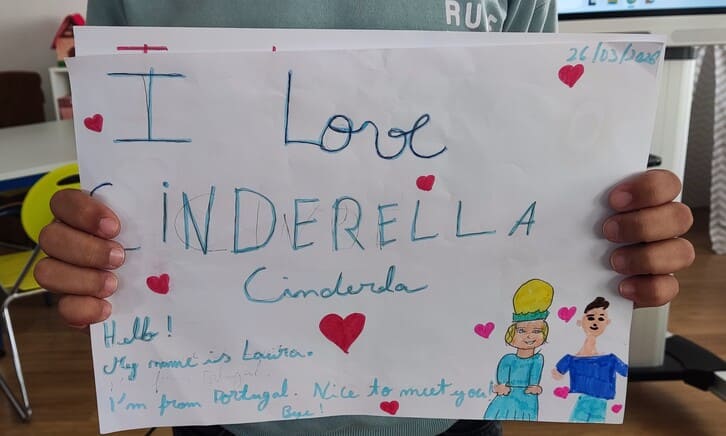 RUE
26/03/2026
I Love
CINDERELLA
Cinderela
Hello!
My name is Laura.
I'm from Portugal. Nice to meet you!
Bye!